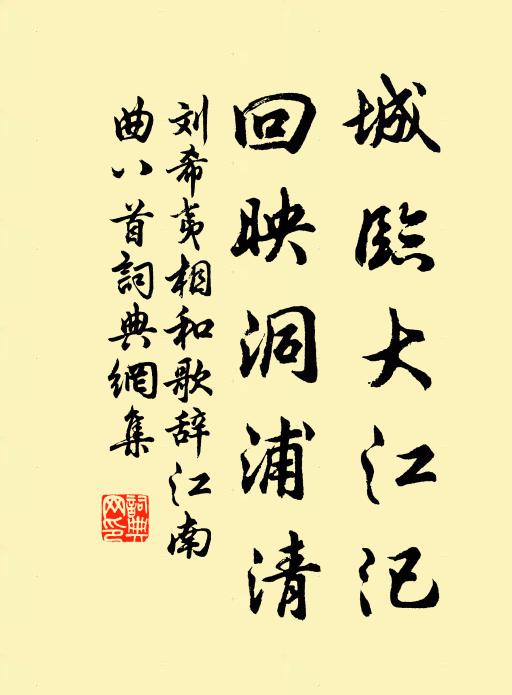 城臨大江汜
回映洞浦清
刘希夷相和歌辞江南
曲八首詞典網集
詞典
网印